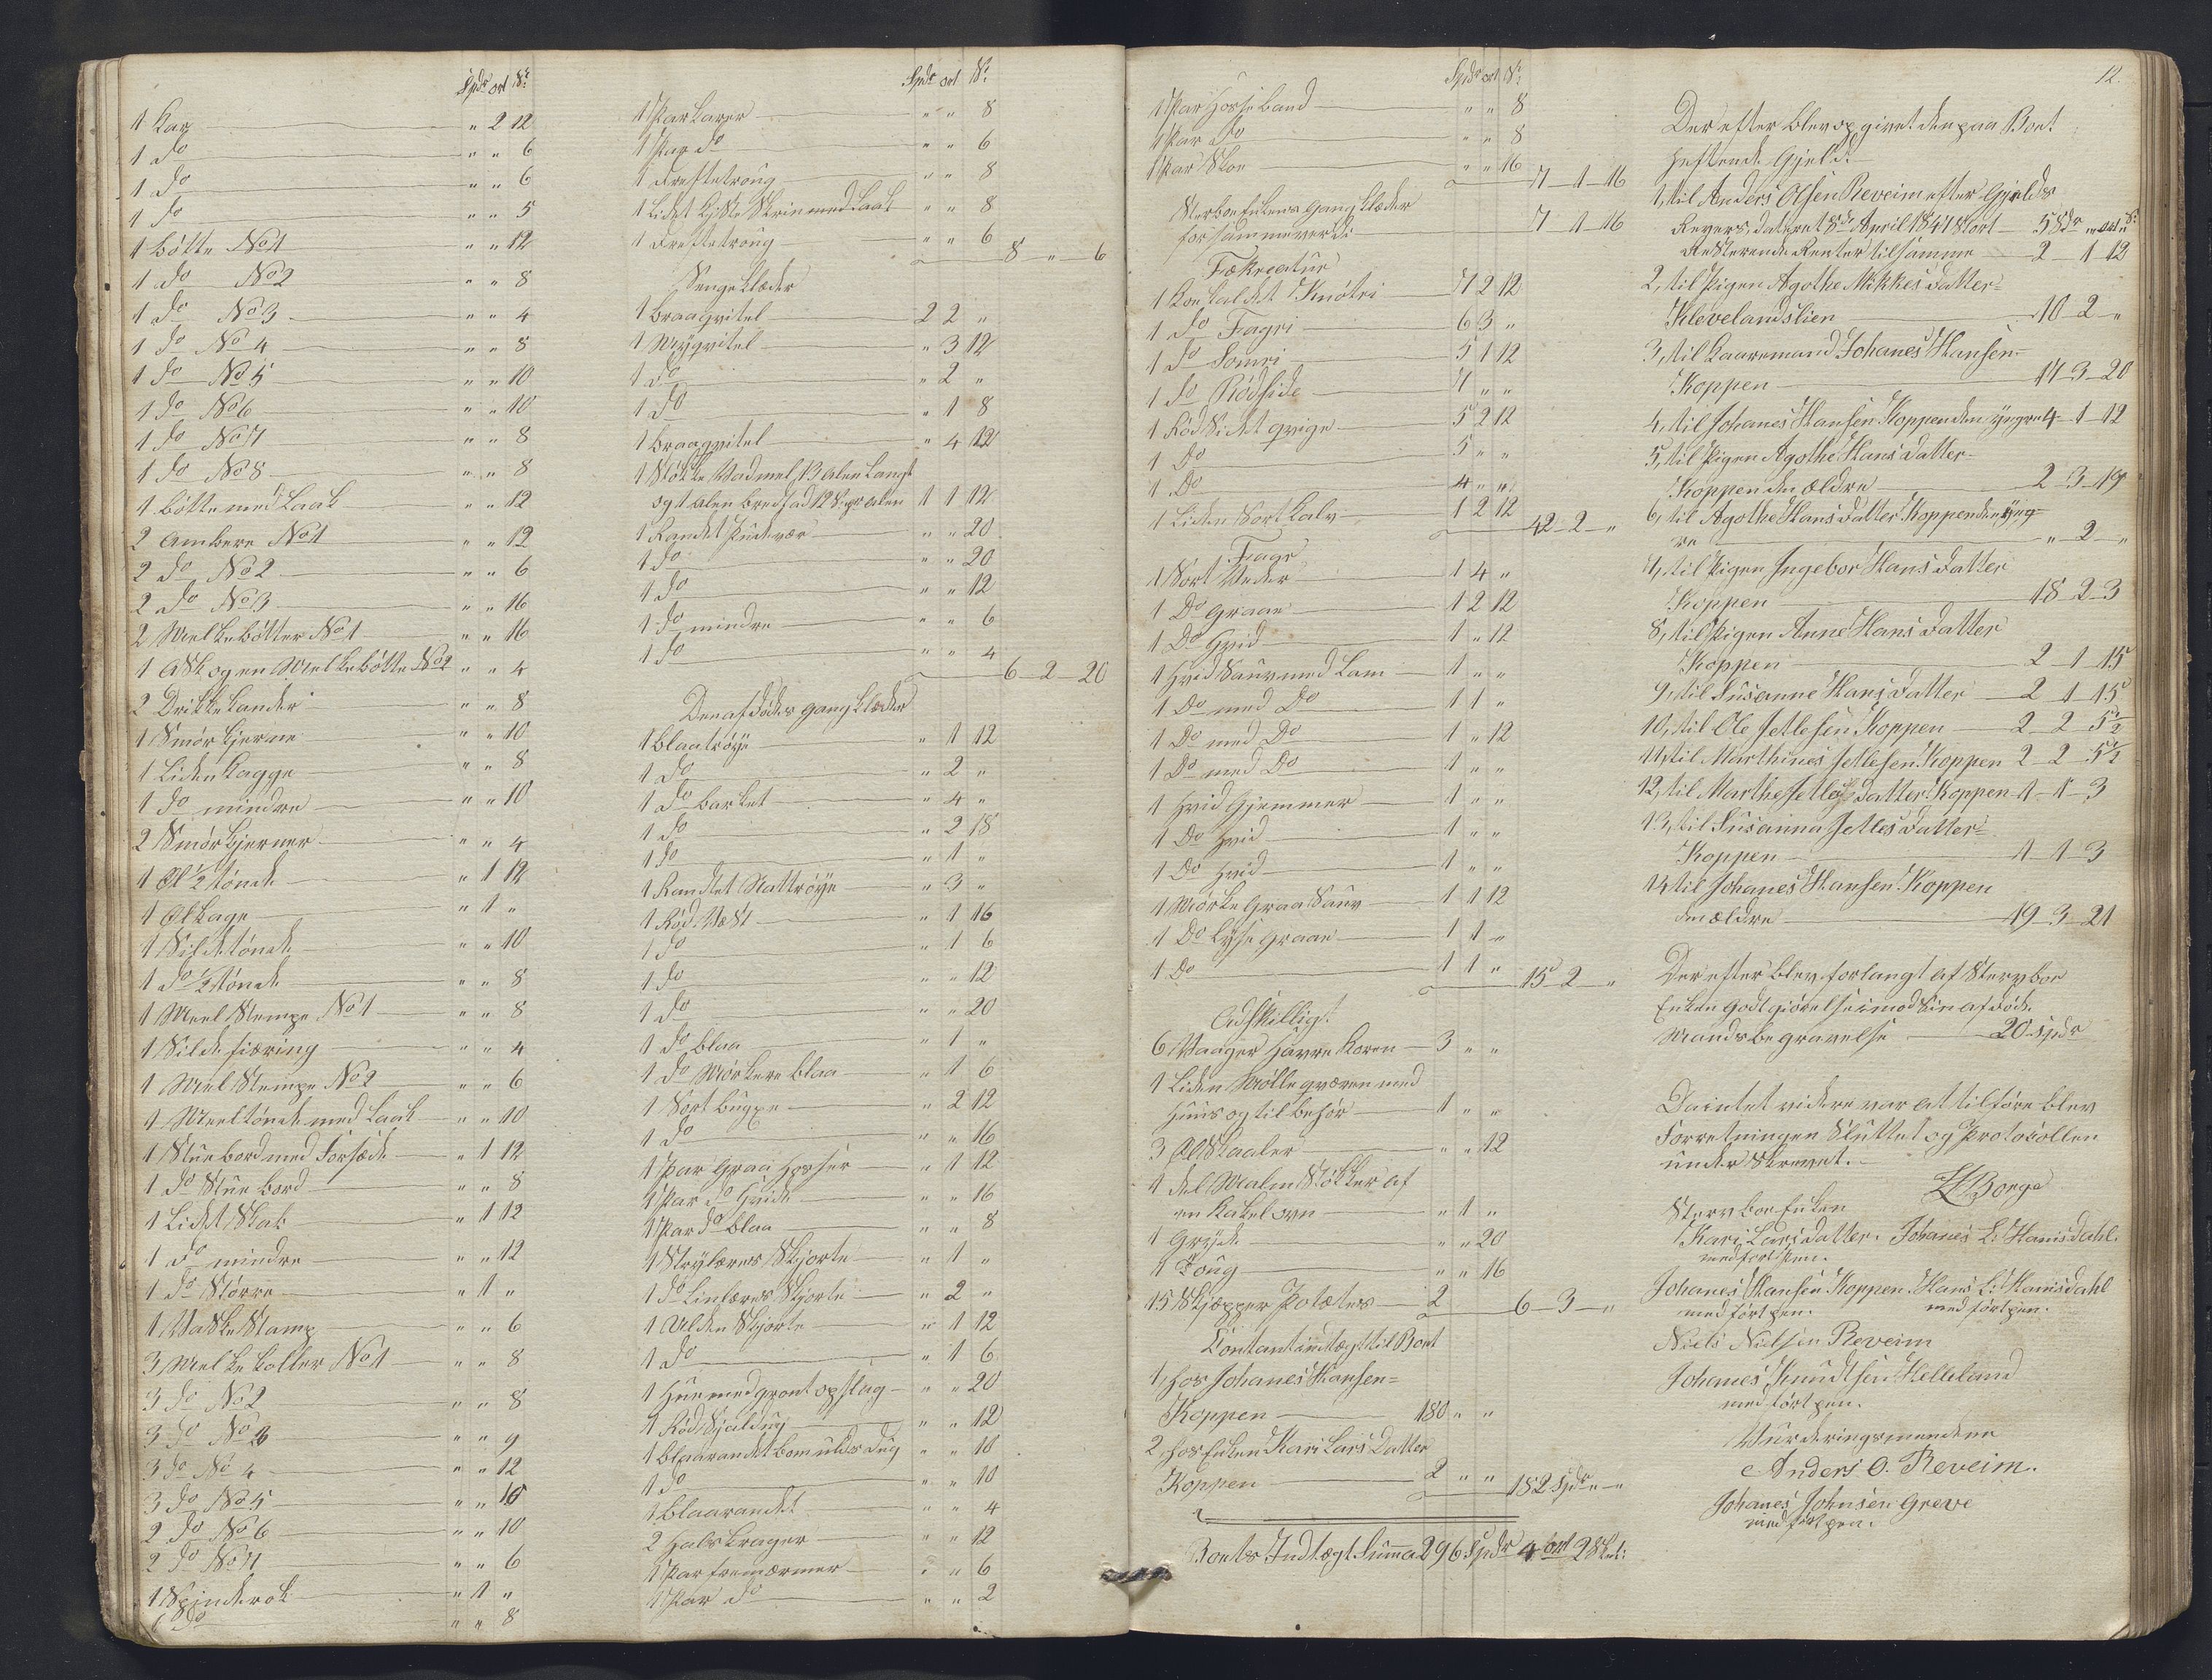 Spdr ort S:
1 Kar " 2 12
1 do " " 6
1 do " " 6
1 do " " 5
1 bötte No 1 " " 12
1 do No 2 " " 8
1 do No 3 " " 4
1 do No 4 " " 8
1 do No 5 " " 10
1 do No 6 " " 10
1 do No 7 " " 8
1 do No 8 " " 8
1 bötte med Laak " " 12
2 Ambere No 1 " " 12
2 do No 2 " " 6
2 do No 3 " " 16
2 Melkebötter No 1 " " 16
1 Ask og en Melkebötte No 2 " " 4
2 Drikkekander " " 8
1 Smörkjerne " " 10
1 Liden Kagge " " 8
1 do mindre " " 10
2 Smörkjerner " " 4
1 Øl ½ tönde " 1 12
1 Ølkage " 1 "
1 Sildetönde " " 10
1 do ½ tönde " " 8
1 Meel Stempe No 1 " " 8
1 Silde fiæring " " 4
1 Meel Stempe No 2 " " 6
1 Meeltönde med Laak " " 10
1 Stuebord med Forsæde " 1 12
1 do Stuebord " " 8
1 Lidet Skab " 1 12
1 do mindre " " 12
1 do Större " 1 "
1 Vaske Stamp " " 6
3 Melkekoller No 1 " " 8
3 do No 2 " " 8
3 do No 3 " " 9
3 do No 4 " " 12
3 do No 5 " " 16
2 do No 6 " " 10
2 do No 7 " " 6
1 Spinderok " 1 "
1 do " " 8
Spdr ort S:
1 Par Karer " " 8
1 Par do " " 6
1 Dreftetroug " " 8
1 Lidet Kiste Skrin med Laak " " 8
1 Dreftetroug " " 6
8 " 6
Sengeklæder
1 Braagvitel 2 2 "
1 Mygvitel " 3 12
1 do " 2 "
1 do " 1 8
1 Braagvitel " 4 12
1 Stökke Vadmel 13 Alen Langt
og 1 Alen bred fad 12 S. pr Alen 1 1 12
1 Randet Pudevær " " 20
1 do " " 20
1 do " " 12
1 do mindre " " 6
1 do " " 4
6 2 20
Den afdödes gangklæder
1 blaatröye " 1 12
1 do " 2 "
1 do barket " 4 "
1 do " 2 18
1 do " 1 "
1 Randtet Nattröye " 3 "
1 Röd Væst " 1 16
1 do " 1 6
1 do " " 12
1 do " " 20
1 do blaa " 1 "
1 do Mörkere blaa " 1 6
1 Sort bugxe " 2 12
1 do " " 16
1 Par Graa Hosser " 1 12
1 Par do Hvide " " 16
1 Par do blaa " " 8
1 Strylæres Skjorte " 1 "
1 do Linlæres Skjorte " 2 "
1 Ulden Skjorte " 1 12
1 do " 1 6
1 Hue med gront opslag " " 20
1 Röd Sjaldug " " 12
1 blaarandet bomuldsdug " " 10
1 do " " 10
1 blaarandet " " 4
2 Halskrager " " 12
1 Par fremærmer " " 6
1 Par do " " 2
Spdr ort S:
1 Par Hosseband " " 8
1 Par do " " 8
1 Par Skoe " " 16
7 1 16
Sterboe Enkens Gangklæder
for samme værdi 7 1 16
Fækreatur
1 Koe kaldet Knotri 7 2 12
1 do Fagri 6 3 "
1 do Somri 5 1 12
1 do Rödside 7 " "
1 Röd Sidet qvige 5 2 12
1 Do 5 " "
1 Do 4 " "
1 Liden Sort Kalv 1 2 12
42 2 "
Faar
1 Sort Veder 1 4 "
1 Do Graae 1 2 12
1 Do Hvid 1 " 12
1 Hvid Sauv med Lam 1 " "
1 Do med Do 1 1 "
1 Do med Do 1 " 12
1 Do med Do 1 " "
1 Hvid Gjemmer 1 " "
1 Do Hvid 1 " "
1 Do Hvid 1 " "
1 Mörke Graa Sauv 1 1 12
1 Do Lyse Graae 1 1 "
1 Do 1 1 "
15 2 "
Adskilligt.
6 Vaager Havre Koren 3 " "
1 Liden Mölle qværen med
Huus og tilbehör 1 " "
3 Ølskaaler " " 12
1 del Malm Stökker af
en Kakelovn " 1 "
1 Gryde " " 20
1 Toug " " 16
15 Skjæpper Potætes 2
6 3 "
Contant indtægt til Boet
1, hos Johanes Hansen
Koppen 180 " "
2, hos Enken Kari Lars Datter
Koppen 2 " "
182 Spdr " "
Boets Indtægt Summa 296 Spdr 4 ort 2 Sk:
12.
Derefter blev opgivet den paa Boet
heftende Gjeld.
1, til Anders Olsen Reveim efter Gjelds
Revers dateret 18de April 1847 Stort 58dr " ort " S:
Resterende Renter tilsamme 2 1 12
2, til Pigen Agothe Mikkes Datter
Klevelandslien 10 2 "
3, til Kaaremand Johanes Hansen
Koppen 17 3 20
4, til Johanes Hansen Koppen den yngre 4 1 12
5, til Pigen Agothe Hans Datter
Koppen den ældre 2 3 19
6, til Agothe Hans Datter Koppen den yng-
re " 2 "
7, til Pigen Ingebor Hans Datter
Koppen 18 2 3
8, til Pigen Anne Hans Datter
Koppen 2 1 15
9, til Susanne Hans Datter 2 1 15
10, til Ole Jetlesen Koppen 2 2 5½
11, til Marthines Jetlesen Koppen 2 2 5½
12, til Marthe Jetles Datter Koppen 1 1 3
13, til Susanna Jetles Datter
Koppen 1 1 3
14, til Johanes Hansen Koppen
den ældre 19 3 21
Derefter blev forlangt af Stervboe
Enken godtgiörelse imod Sin afdöde
Mands begravelse 20 Spdr
Da intet videre var at tilföre blev
Forretningen Sluttet og Protocollen
underskrevet.
L Borge
Stervboe Enken
Kari Lars datter. Johanes L: Hanisdahl.
med fört Pen.
Johanes Hansen Koppen. Hans L: Hanisdahl
med fört pen. med fört pen.
Niels Nielsen Reveim
Johanes Knudtsen Helleland
med fört pen.
Vurderingsmændene
Anders O. Reveim.
Johanes Johnsen Greve
med fört pen.